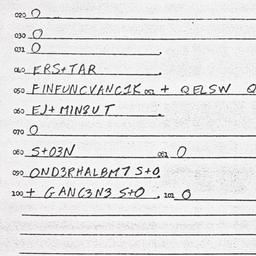 020 O
030 O
031 O
040 ERS+TAR
050 FINFUNCVANC1K 051 + QELSW Q
060 EJ+MIN8UT
070 O
080 S+O3N 081 O
090 OND3RHALBM7 S+O
100 + GANC3N3 S+O . 101 O